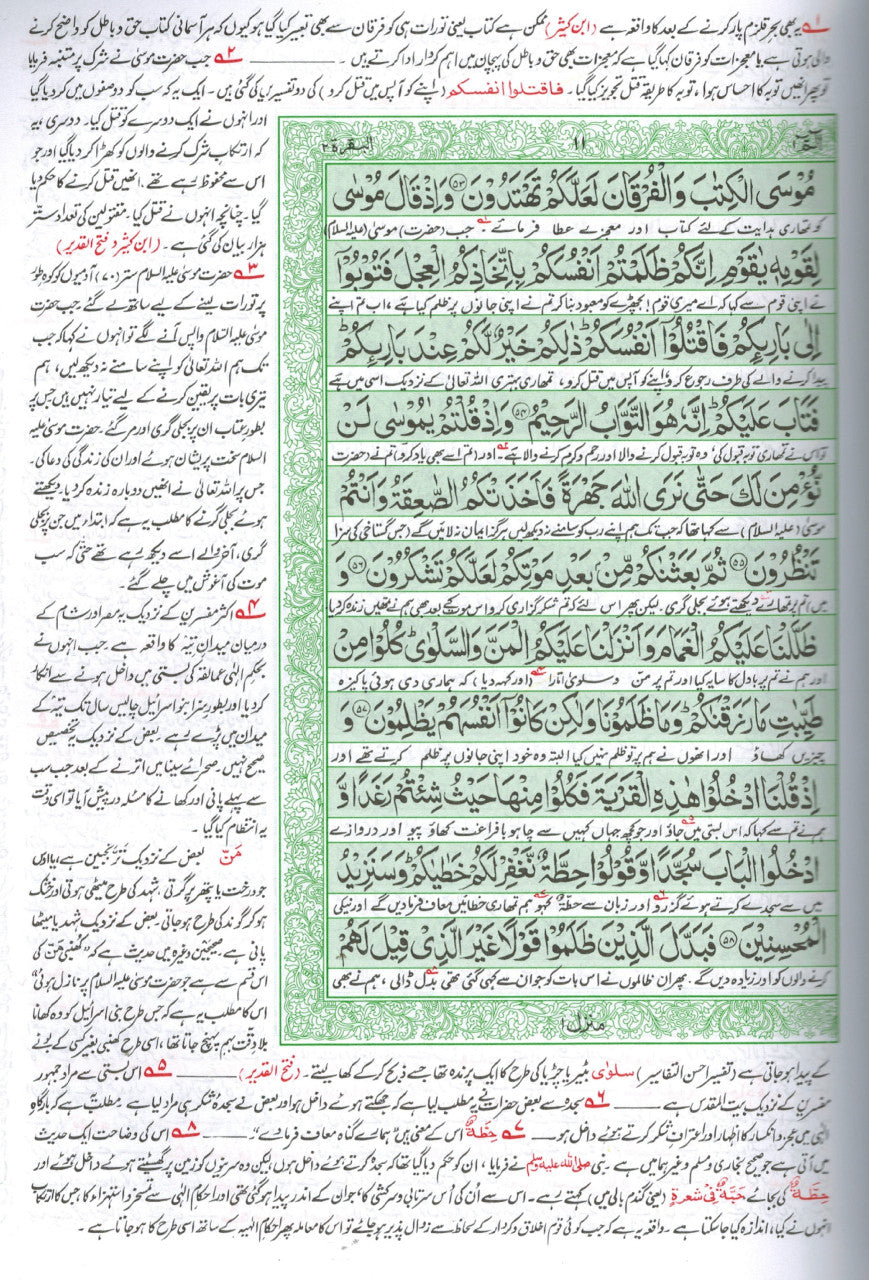 ۱ یہ بھی بحر قلزم پار کرنے کے بعد کا واقعہ ہے (ابن کثیر) ممکن ہے کتاب یعنی تورات ہی کو فرقان سے بھی تعبیر کیا گیا ہو کیوں کہ ہر آسمانی کتاب حق و باطل کو واضح کرنے
والی ہوتی ہے یا معجزات کو فرقان کہا گیا ہے کہ معجزات بھی حق و باطل کی پہچان میں اہم کردار ادا کرتے ہیں۔ ۲ جب حضرت موسیٰ نے شرک پر متنبہ فرمایا
تو پھر انھیں توبہ کا احساس ہوا، توبہ کا طریقہ قتل تجویز کیا گیا۔ فاقتلوا انفسکم (اپنے کو آپس میں قتل کرو) کی دو تفسیریں کی گئی ہیں۔ ایک یہ کہ سب کو دو صفوں میں کر دیا گیا
اور انہوں نے ایک دوسرے کو قتل کیا۔ دوسری، یہ
کہ ارتکاب شرک کرنے والوں کو کھڑا کر دیا گیا اور جو
اس سے محفوظ رہے تھے، انھیں قتل کرنے کا حکم دیا
گیا۔ چنانچہ انہوں نے قتل کیا۔ مقتولین کی تعداد ستر
ہزار بیان کی گئی ہے۔ (ابن کثیر و فتح القدیر)
۳ حضرت موسیٰ علیہ السلام ستر (۷۰) آدمیوں کو کوہ طور
پر تورات لینے کے لیے ساتھ لے گئے۔ جب حضرت
موسیٰ علیہ السلام واپس آنے لگے تو انہوں نے کہا کہ جب
تک ہم اللہ تعالیٰ کو اپنے سامنے نہ دیکھ لیں، ہم
تیری بات پر یقین کرنے کے لیے تیار نہیں ہیں جس پر
بطور عتاب ان پر بجلی گری اور مر گئے۔ حضرت موسیٰ علیہ
السلام سخت پریشان ہوئے اور ان کی زندگی کی دعا کی۔
جس پر اللہ تعالیٰ نے انھیں دوبارہ زندہ کر دیا۔ دیکھتے
ہوئے بجلی گرنے کا مطلب یہ ہے کہ ابتدا میں جن پر بجلی
گری، آخر والے اسے دیکھ رہے تھے حتیٰ کہ سب
موت کی آغوش میں چلے گئے۔
۴ اکثر مفسرین کے نزدیک یہ مصر اور شام کے
درمیان میدان تیہ کا واقعہ ہے۔ جب انہوں نے
بحکم الٰہی عمالقہ کی بستی میں داخل ہونے سے انکار
کر دیا اور بطور سزا بنو اسرائیل چالیس سال تک تیہ کے
میدان میں پڑے رہے۔ بعض کے نزدیک یہ تخصیص
صحیح نہیں۔ صحرائے سینا میں اترنے کے بعد جب سب
سے پہلے پانی اور کھانے کا مسئلہ درپیش آیا تو اسی وقت
یہ انتظام کیا گیا۔
مَنّ بعض کے نزدیک ترنجبین ہے، یا اوس
جو درخت یا پتھر پر گرتی، شہد کی طرح میٹھی ہوتی اور خشک
ہو کر گوند کی طرح ہو جاتی۔ بعض کے نزدیک شہد یا میٹھا
پانی ہے۔ صحیحین وغیرہ میں حدیث ہے کہ "کھنبی مَن کی
اس قسم سے ہے جو حضرت موسیٰ علیہ السلام پر نازل ہوئی"
اس کا مطلب یہ ہے کہ جس طرح بنی اسرائیل کو وہ کھانا
بلا دقت بہم پہنچ جاتا تھا، اسی طرح کھنبی بغیر کسی کے بوئے
الٓمّٓ ۱
۱۱
البقرة ۲
مُوْسَى الْكِتٰبَ وَالْفُرْقَانَ لَعَلَّكُمْ تَهْتَدُوْنَ ﴿۵۳﴾ وَاِذْ قَالَ مُوْسٰى
کو تمھاری ہدایت کے لئے کتاب اور معجزے عطا فرمائے۔ ۱ جب (حضرت) موسیٰ (علیہ السلام)
لِقَوْمِهٖ يٰقَوْمِ اِنَّكُمْ ظَلَمْتُمْ اَنْفُسَكُمْ بِاتِّخَاذِكُمُ الْعِجْلَ فَتُوْبُوْٓا
نے اپنی قوم سے کہا کہ اے میری قوم! بچھڑے کو معبود بنا کر تم نے اپنی جانوں پر ظلم کیا ہے، اب تم اپنے
اِلٰى بَارِئِكُمْ فَاقْتُلُوْٓا اَنْفُسَكُمْ ذٰلِكُمْ خَيْرٌ لَّكُمْ عِنْدَ بَارِئِكُمْ
پیدا کرنے والے کی طرف رجوع کرو، اپنے کو آپس میں قتل کرو، تمھاری بہتری اللہ تعالیٰ کے نزدیک اسی میں ہے
فَتَابَ عَلَيْكُمْ اِنَّهٗ هُوَ التَّوَّابُ الرَّحِيْمُ ﴿۵۴﴾ وَاِذْ قُلْتُمْ يٰمُوْسٰى لَنْ
تو اس نے تمھاری توبہ قبول کی، وہ توبہ قبول کرنے والا اور رحم و کرم کرنے والا ہے۔ ۲ اور (تم اسے بھی یاد کرو) تم نے (حضرت
نُّؤْمِنَ لَكَ حَتّٰى نَرَى اللّٰهَ جَهْرَةً فَاَخَذَتْكُمُ الصّٰعِقَةُ وَاَنْتُمْ
موسیٰ (علیہ السلام) سے کہا تھا کہ جب تک ہم اپنے رب کو سامنے نہ دیکھ لیں ہرگز ایمان نہ لائیں گے (جس گستاخی کی سزا
تَنْظُرُوْنَ ﴿۵۵﴾ ثُمَّ بَعَثْنٰكُمْ مِّنْۢ بَعْدِ مَوْتِكُمْ لَعَلَّكُمْ تَشْكُرُوْنَ ﴿۵۶﴾ وَ
میں) تم پر تمھارے دیکھتے ہوئے بجلی گری۔ لیکن پھر اس لئے کہ تم شکر گزاری کرو اس موت کے بعد بھی ہم نے تمھیں زندہ کر دیا
ظَلَّلْنَا عَلَيْكُمُ الْغَمَامَ وَاَنْزَلْنَا عَلَيْكُمُ الْمَنَّ وَالسَّلْوٰى كُلُوْا مِنْ
اور ہم نے تم پر بادل کا سایہ کیا اور تم پر من و سلویٰ اتارا ۴ (اور کہہ دیا) کہ ہماری دی ہوئی پاکیزہ
طَيِّبٰتِ مَا رَزَقْنٰكُمْ وَمَا ظَلَمُوْنَا وَلٰكِنْ كَانُوْٓا اَنْفُسَهُمْ يَظْلِمُوْنَ ﴿۵۷﴾ وَ
چیزیں کھاؤ اور انھوں نے ہم پر تو ظلم نہیں کیا البتہ وہ خود اپنی جانوں پر ظلم کرتے تھے اور
اِذْ قُلْنَا ادْخُلُوْا هٰذِهِ الْقَرْيَةَ فَكُلُوْا مِنْهَا حَيْثُ شِئْتُمْ رَغَدًا وَّ
ہم نے تم سے کہا کہ اس بستی میں ۵ جاؤ اور جو کچھ جہاں کہیں سے چاہو با فراغت کھاؤ پیو اور دروازے
ادْخُلُوا الْبَابَ سُجَّدًا وَّقُوْلُوْا حِطَّةٌ نَّغْفِرْ لَكُمْ خَطٰيٰكُمْ وَسَنَزِيْدُ
میں سے سجدے کرتے ہوئے گزرو ۶ اور زبان سے حطۃ ۷ کہو ہم تمھاری خطائیں معاف فرما دیں گے اور نیکی
الْمُحْسِنِيْنَ ﴿۵۸﴾ فَبَدَّلَ الَّذِيْنَ ظَلَمُوْا قَوْلًا غَيْرَ الَّذِيْ قِيْلَ لَهُمْ
کرنے والوں کو اور زیادہ دیں گے۔ پھر ان ظالموں نے اس بات کو جو ان سے کہی گئی تھی ۸ بدل ڈالی، ہم نے بھی
منزل ۱
کے پیدا ہو جاتی ہے (تفسیر احسن التفاسیر) سلویٰ بٹیر یا چڑیا کی طرح کا ایک پرندہ تھا جسے ذبح کر کے کھا لیتے۔ (فتح القدیر) ۵ اس بستی سے مراد جمہور
مفسرین کے نزدیک بیت المقدس ہے ۶ سجدہ سے بعض حضرات نے یہ مطلب لیا ہے کہ جھکتے ہوئے داخل ہو اور بعض نے سجدۂ شکر ہی مراد لیا ہے۔ مطلب ہے کہ بارگاہ
الٰہی میں عجز و انکسار کا اظہار اور اعتراف شکر کرتے ہوئے داخل ہو۔ ۷ حِطَّةٌ اس کے معنی ہیں "ہمارے گناہ معاف فرما دے"۔ ۸ اس کی وضاحت ایک حدیث
میں آتی ہے جو صحیح بخاری و مسلم وغیرہما میں ہے۔ نبی صلی اللہ علیہ وسلم نے فرمایا، ان کو حکم دیا گیا تھا کہ سجدہ کرتے ہوئے داخل ہوں لیکن وہ سرینوں کو زمین پر گھسیٹتے ہوئے داخل ہوئے اور
حِطَّةٌ کی بجائے حَبَّةٌ فِيْ شَعْرَةٍ (یعنی گندم بالی میں) کہتے رہے۔ اس سے ان کی اس سرتابی و سرکشی کا جو ان کے اندر پیدا ہو گئی تھی اور احکام الٰہی سے تمسخر و استہزا کا، جس کا ارتکاب
انہوں نے کیا، اندازہ کیا جا سکتا ہے۔ واقعہ یہ ہے کہ جب کوئی قوم اخلاق و کردار کے لحاظ سے زوال پذیر ہو جائے تو اس کا معاملہ پھر احکام الٰہیہ کے ساتھ اسی طرح کا ہو جاتا ہے۔